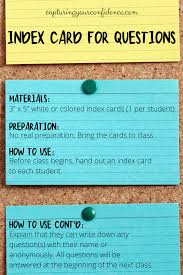 capturingyourconfidence.com
INDEX CARD FOR QUESTIONS
MATERIALS:
3" x 5" white or colored index cards (1 per student)
PREPARATION:
No reading preparation; Bring the cards to class
HOW TO USE:
Before class begins, hand out an index card
to each student.
HOW TO USE CONT'D:
Explain that they can write down any
question(s) with their name or
anonymously. All questions will be
answered at the beginning of the next class.